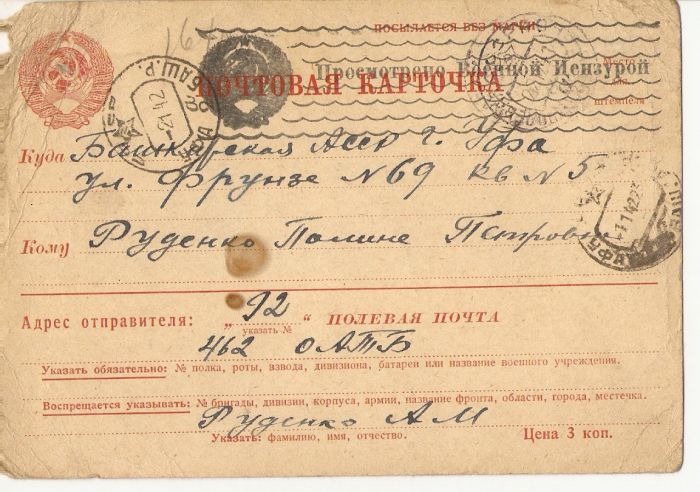 164
ПОСЫЛАЕТСЯ БЕЗ МАРКИ
Просмотрено Военной Цензурой
ПОЧТОВАЯ КАРТОЧКА
Место
для
штемпеля
УФА БАШ.Р.
-2 1 42
Куда Башкирская Асср г. Уфа
ул. Фрунзе №69 кв №5
УФА
Кому Руденко Полине Петровне
Адрес отправителя: „92“ ПОЛЕВАЯ ПОЧТА
указать №
462 ОАТБ
Указать обязательно: № полка, роты, взвода, дивизиона, батареи или название военного учреждения.
Воспрещается указывать: № бригады, дивизии, корпуса, армии, название фронта, области, города, местечка.
Руденко АМ
Указать: фамилию, имя, отчество.
Цена 3 коп.